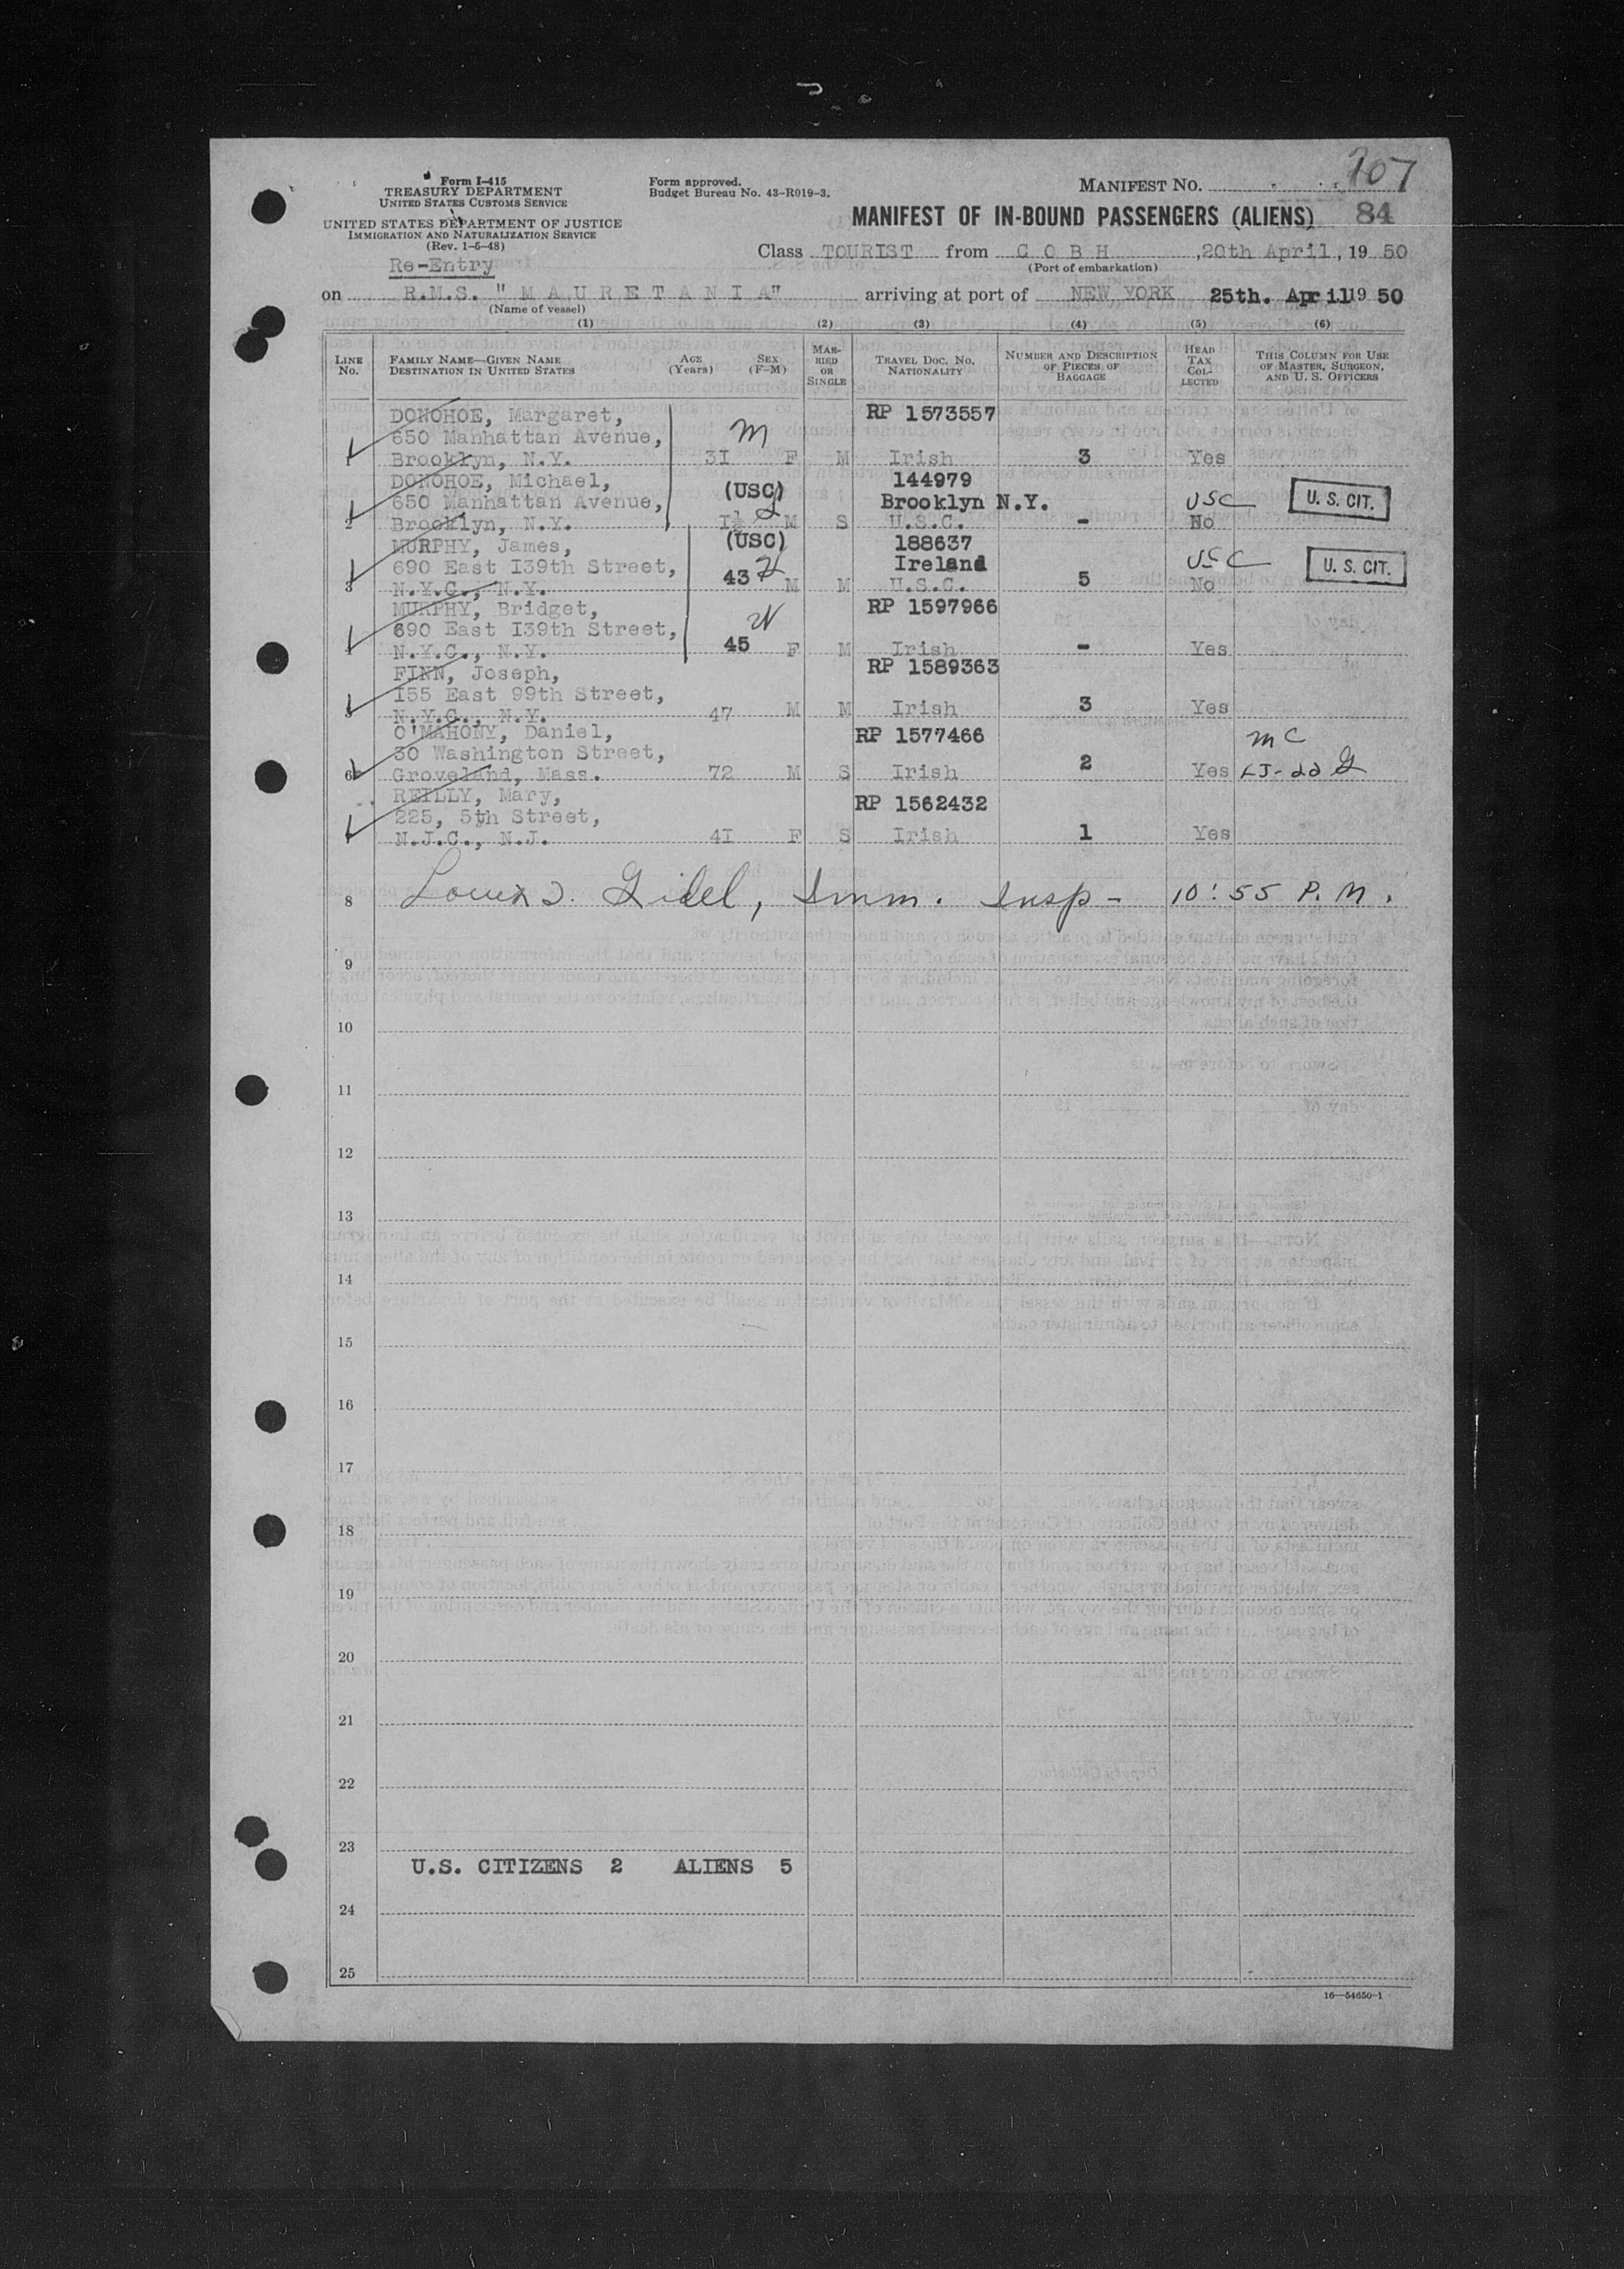 Form I-415
TREASURY DEPARTMENT
UNITED STATES CUSTOMS SERVICE
UNITED STATES DEPARTMENT OF JUSTICE
IMMIGRATION AND NATURALIZATION SERVICE
(Rev. 1-6-48)
Re-Entry
Form approved.
Budget Bureau No. 43-R019-3.
MANIFEST NO. 207
MANIFEST OF IN-BOUND PASSENGERS (ALIENS) 84
Class TOURIST from C O B H, 20th April, 19 50
(Port of embarkation)
on R.M.S. "M A U R E T A N I A" arriving at port of NEW YORK 25th. April 19 50
(Name of vessel)
(1) (2) (3) (4) (5) (6)
LINE No. FAMILY NAME—GIVEN NAME DESTINATION IN UNITED STATES AGE (Years) SEX (F-M) MARRIED OR SINGLE TRAVEL DOC. NO. NATIONALITY NUMBER AND DESCRIPTION OF PIECES OF BAGGAGE HEAD TAX COLLECTED THIS COLUMN FOR USE OF MASTER, SURGEON, AND U. S. OFFICERS
DONOHOE, Margaret, RP 1573557
650 Manhattan Avenue, M
1 Brooklyn, N.Y. 3I F M Irish 3 Yes
DONOHOE, Michael, 144979
650 Manhattan Avenue, (USC) Brooklyn N.Y. USC U. S. CIT.
2 Brooklyn, N.Y. I½ M S U.S.C. - No
MURPHY, James, (USC) 188637
690 East I39th Street, Ireland USC U. S. CIT.
3 N.Y.C., N.Y. 43 M M U.S.C. 5 No
MURPHY, Bridget, RP 1597966
690 East I39th Street,
N.Y.C., N.Y. 45 F M Irish - Yes
FINN, Joseph, RP 1589363
I55 East 99th Street,
N.Y.C., N.Y. 47 M M Irish 3 Yes
O'MAHONY, Daniel, RP 1577466 MC
30 Washington Street,
6 Groveland, Mass. 72 M S Irish 2 Yes
REILLY, Mary, RP 1562432
225, 5th Street,
N.J.C., N.J. 4I F S Irish 1 Yes
8 Gidel, Imm. Insp - 10:55 P.M.
9
10
11
12
13
14
15
16
17
18
19
20
21
22
23
U.S. CITIZENS 2 ALIENS 5
24
25
16—54650-1